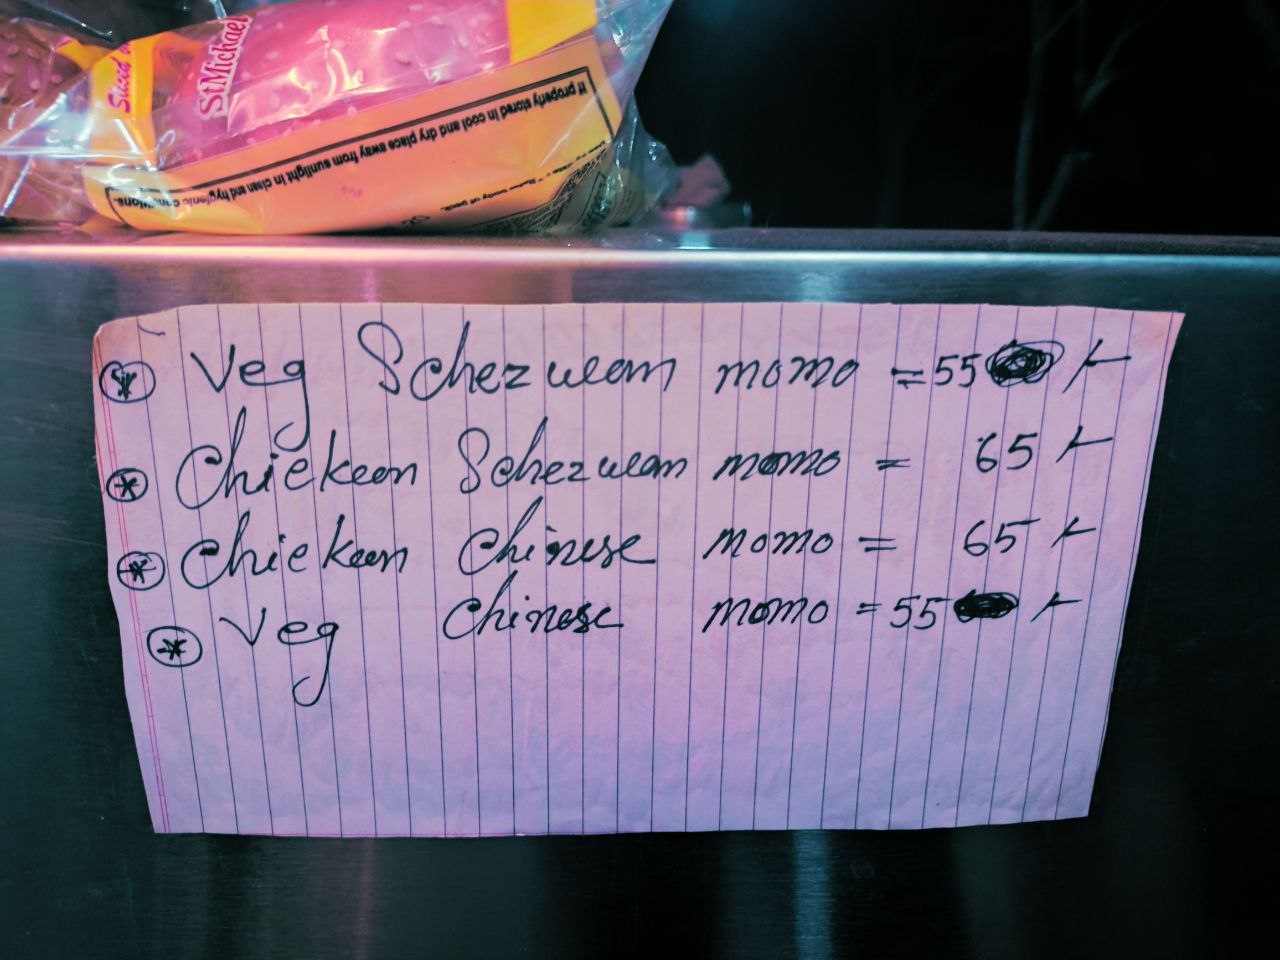 Sliced
St Michael
If properly stored in cool and dry place away from sunlight in clean and hygienic conditions.
Veg Schezwan momo = 55 /-
Chickeen Schezwan momo = 65 /-
Chickeen Chinese momo = 65 /-
Veg Chinese momo = 55 /-